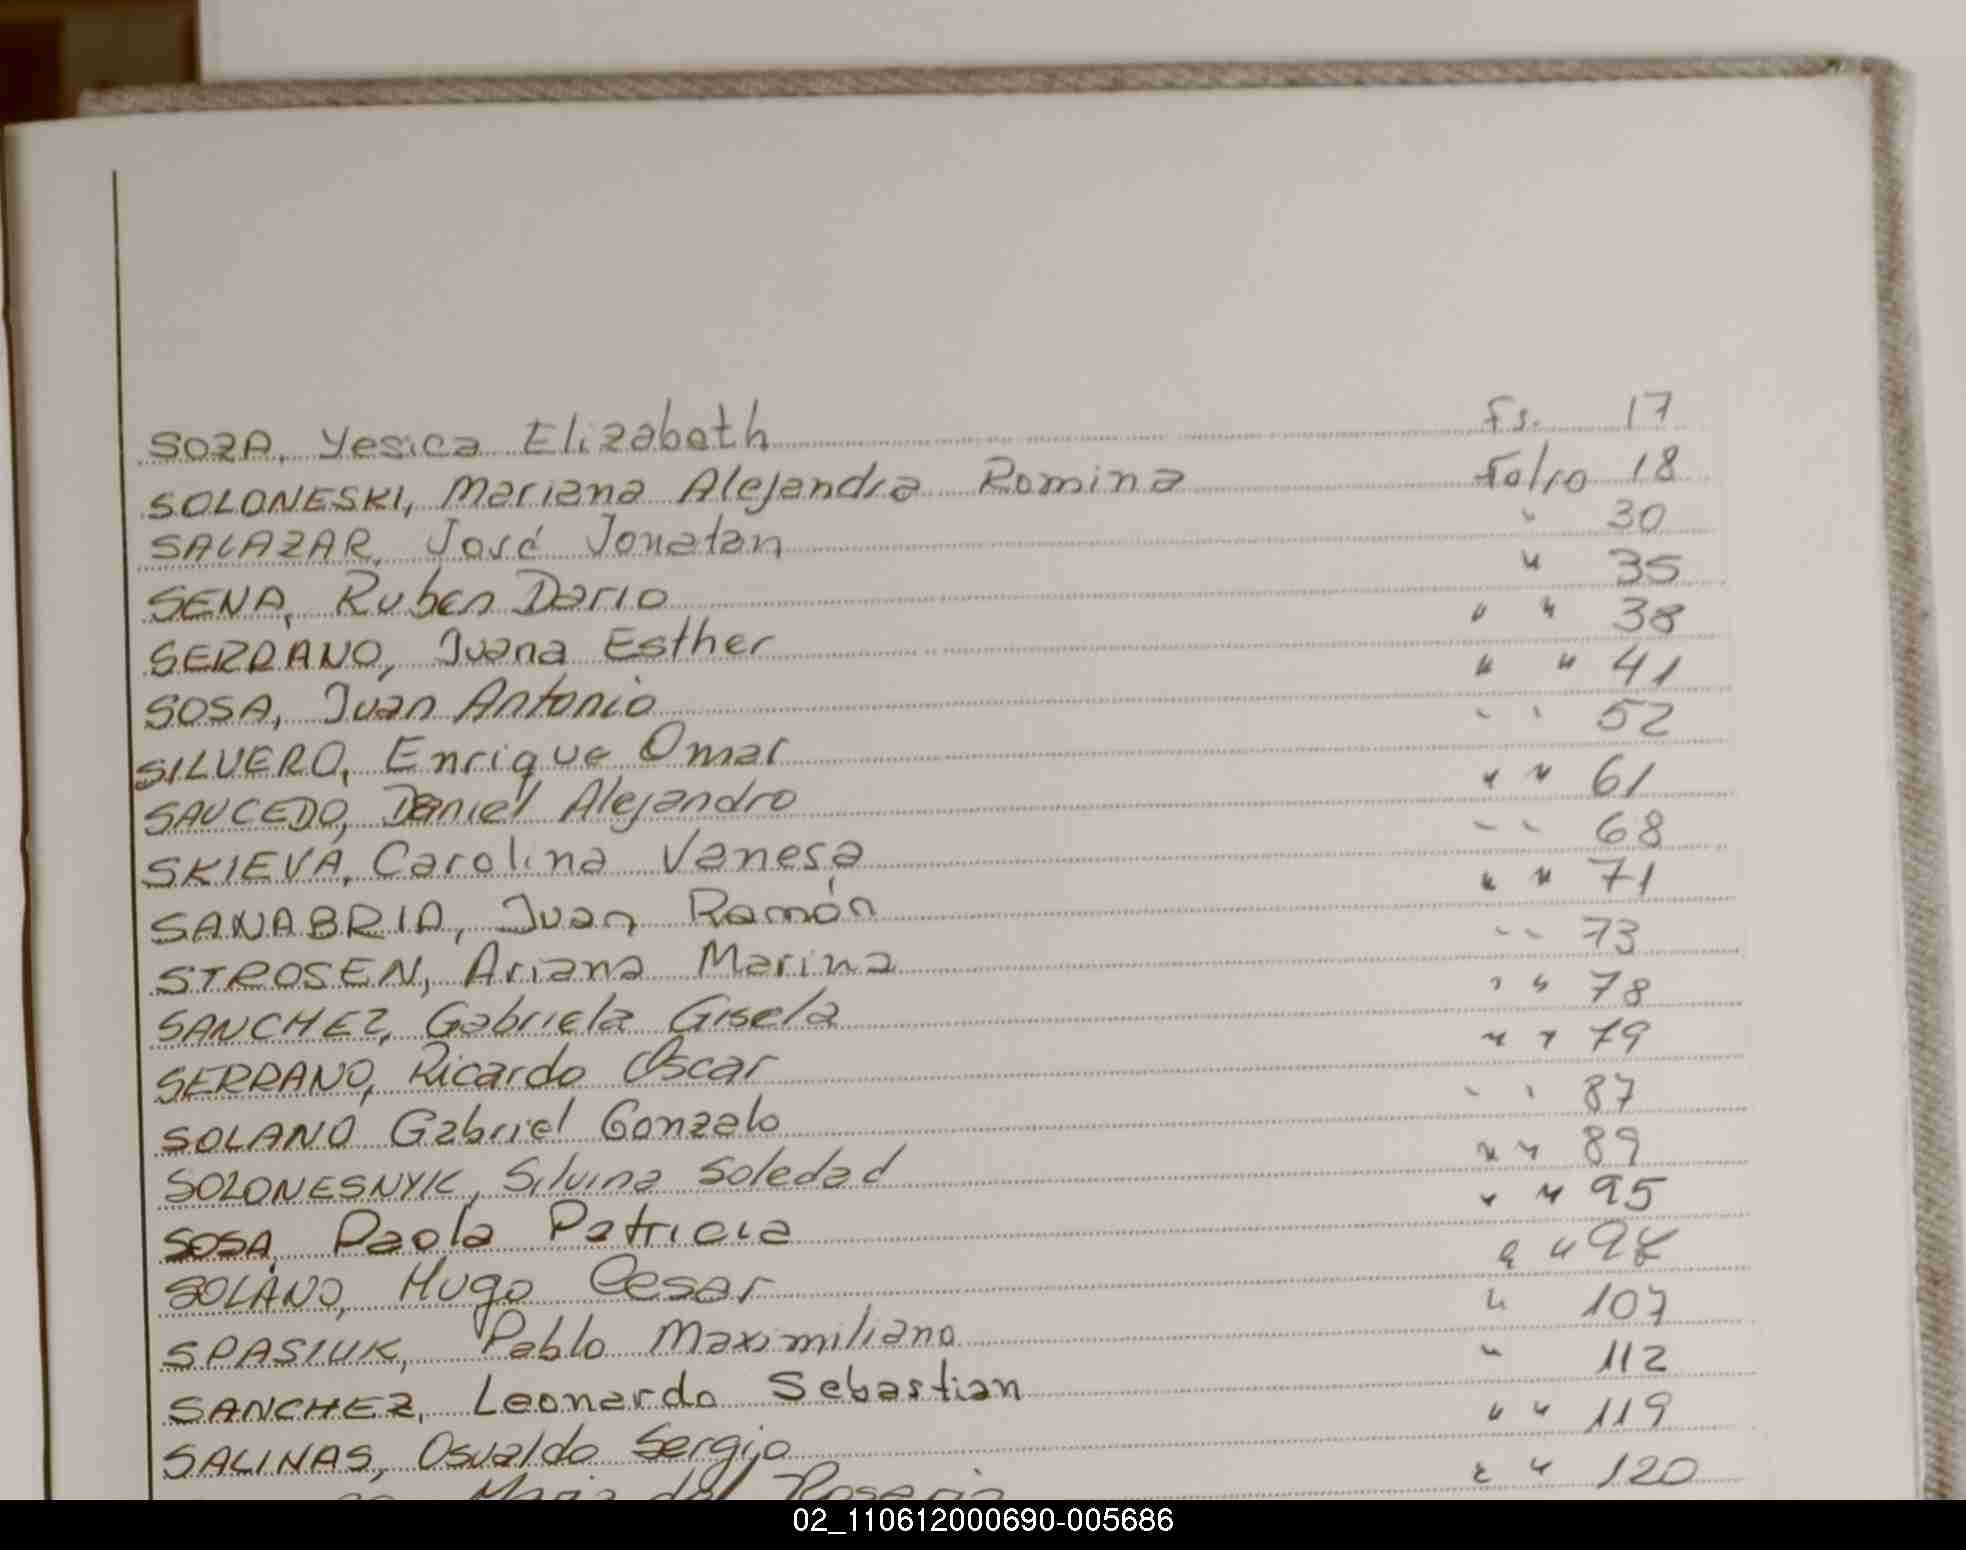 SOZA, Yesica Elizabeth Fs. 17
SOLONESKI, Mariana Alejandra Romina Folio 18
SALAZAR, José Jonatan " 30
SENA, Ruben Dario " 35
SERRANO, Juana Esther " " 38
SOSA, Juan Antonio " " 41
SILVERO, Enrique Omar " " 52
SAUCEDO, Daniel Alejandro " " 61
SKIEVA, Carolina Vanesa " " 68
SANABRIA, Juan Ramón " " 71
STROSEN, Ariana Marina " " 73
SANCHEZ, Gabriela Gisela " " 78
SERRANO, Ricardo Oscar " " 79
SOLANO Gabriel Gonzalo " " 87
SOLONESNYK, Silvina Soledad " " 89
SOSA, Paola Patricia " " 95
SOLANO, Hugo Cesar " " 98
SPASIUK, Pablo Maximiliano " 107
SANCHEZ, Leonardo Sebastian " 112
SALINAS, Osvaldo Sergio " " 119
Maria del Rosario " " 120
02_110612000690-005686